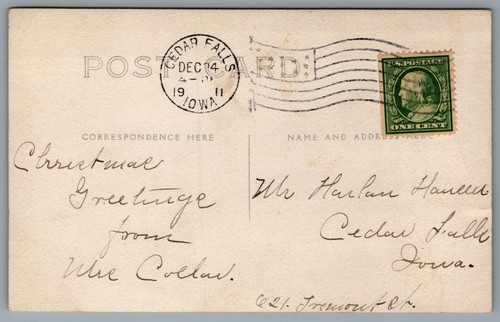 POST CARD
CEDAR FALLS
DEC 24
4-PM
1911
IOWA
U.S. POSTAGE
ONE CENT
CORRESPONDENCE HERE
NAME AND ADDRESS HERE
Christmas
Greetings
from
Mrs
Mr Harlan Hansen
Cedar Falls
Iowa.
621 Tremont St.